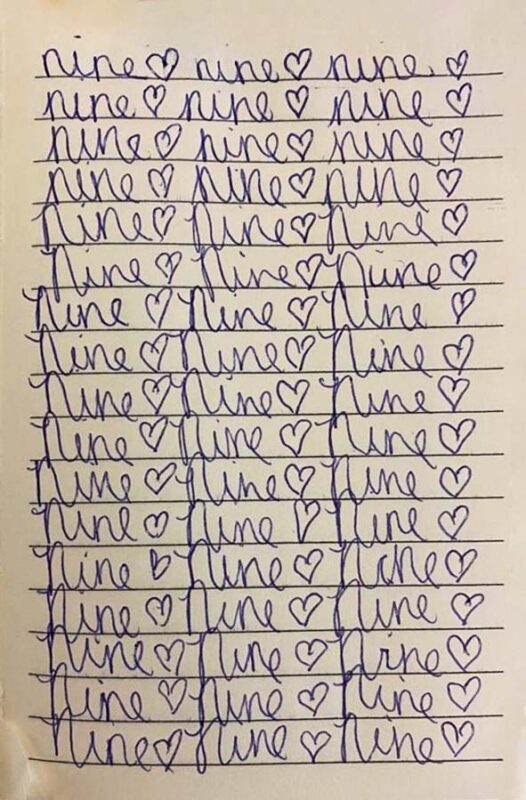 nine♡ nine♡ nine ♡
nine♡ nine ♡ nine ♡
nine♡ nine♡ nine ♡
nine♡ nine♡ nine ♡
nine♡ nine♡ nine ♡
nine♡ nine♡ nine♡
nine ♡ nine ♡ nine ♡
nine♡ nine♡ nine ♡
nine♡ nine♡ nine ♡
nine♡ nine ♡ nine ♡
nine ♡ nine♡ nine ♡
nine♡ nine ♡ nine ♡
nine ♡ nine ♡ nine♡
nine ♡ nine ♡ nine ♡
nine♡ nine ♡ nine♡
nine ♡ nine ♡ nine ♡
nine♡ nine ♡ nine♡